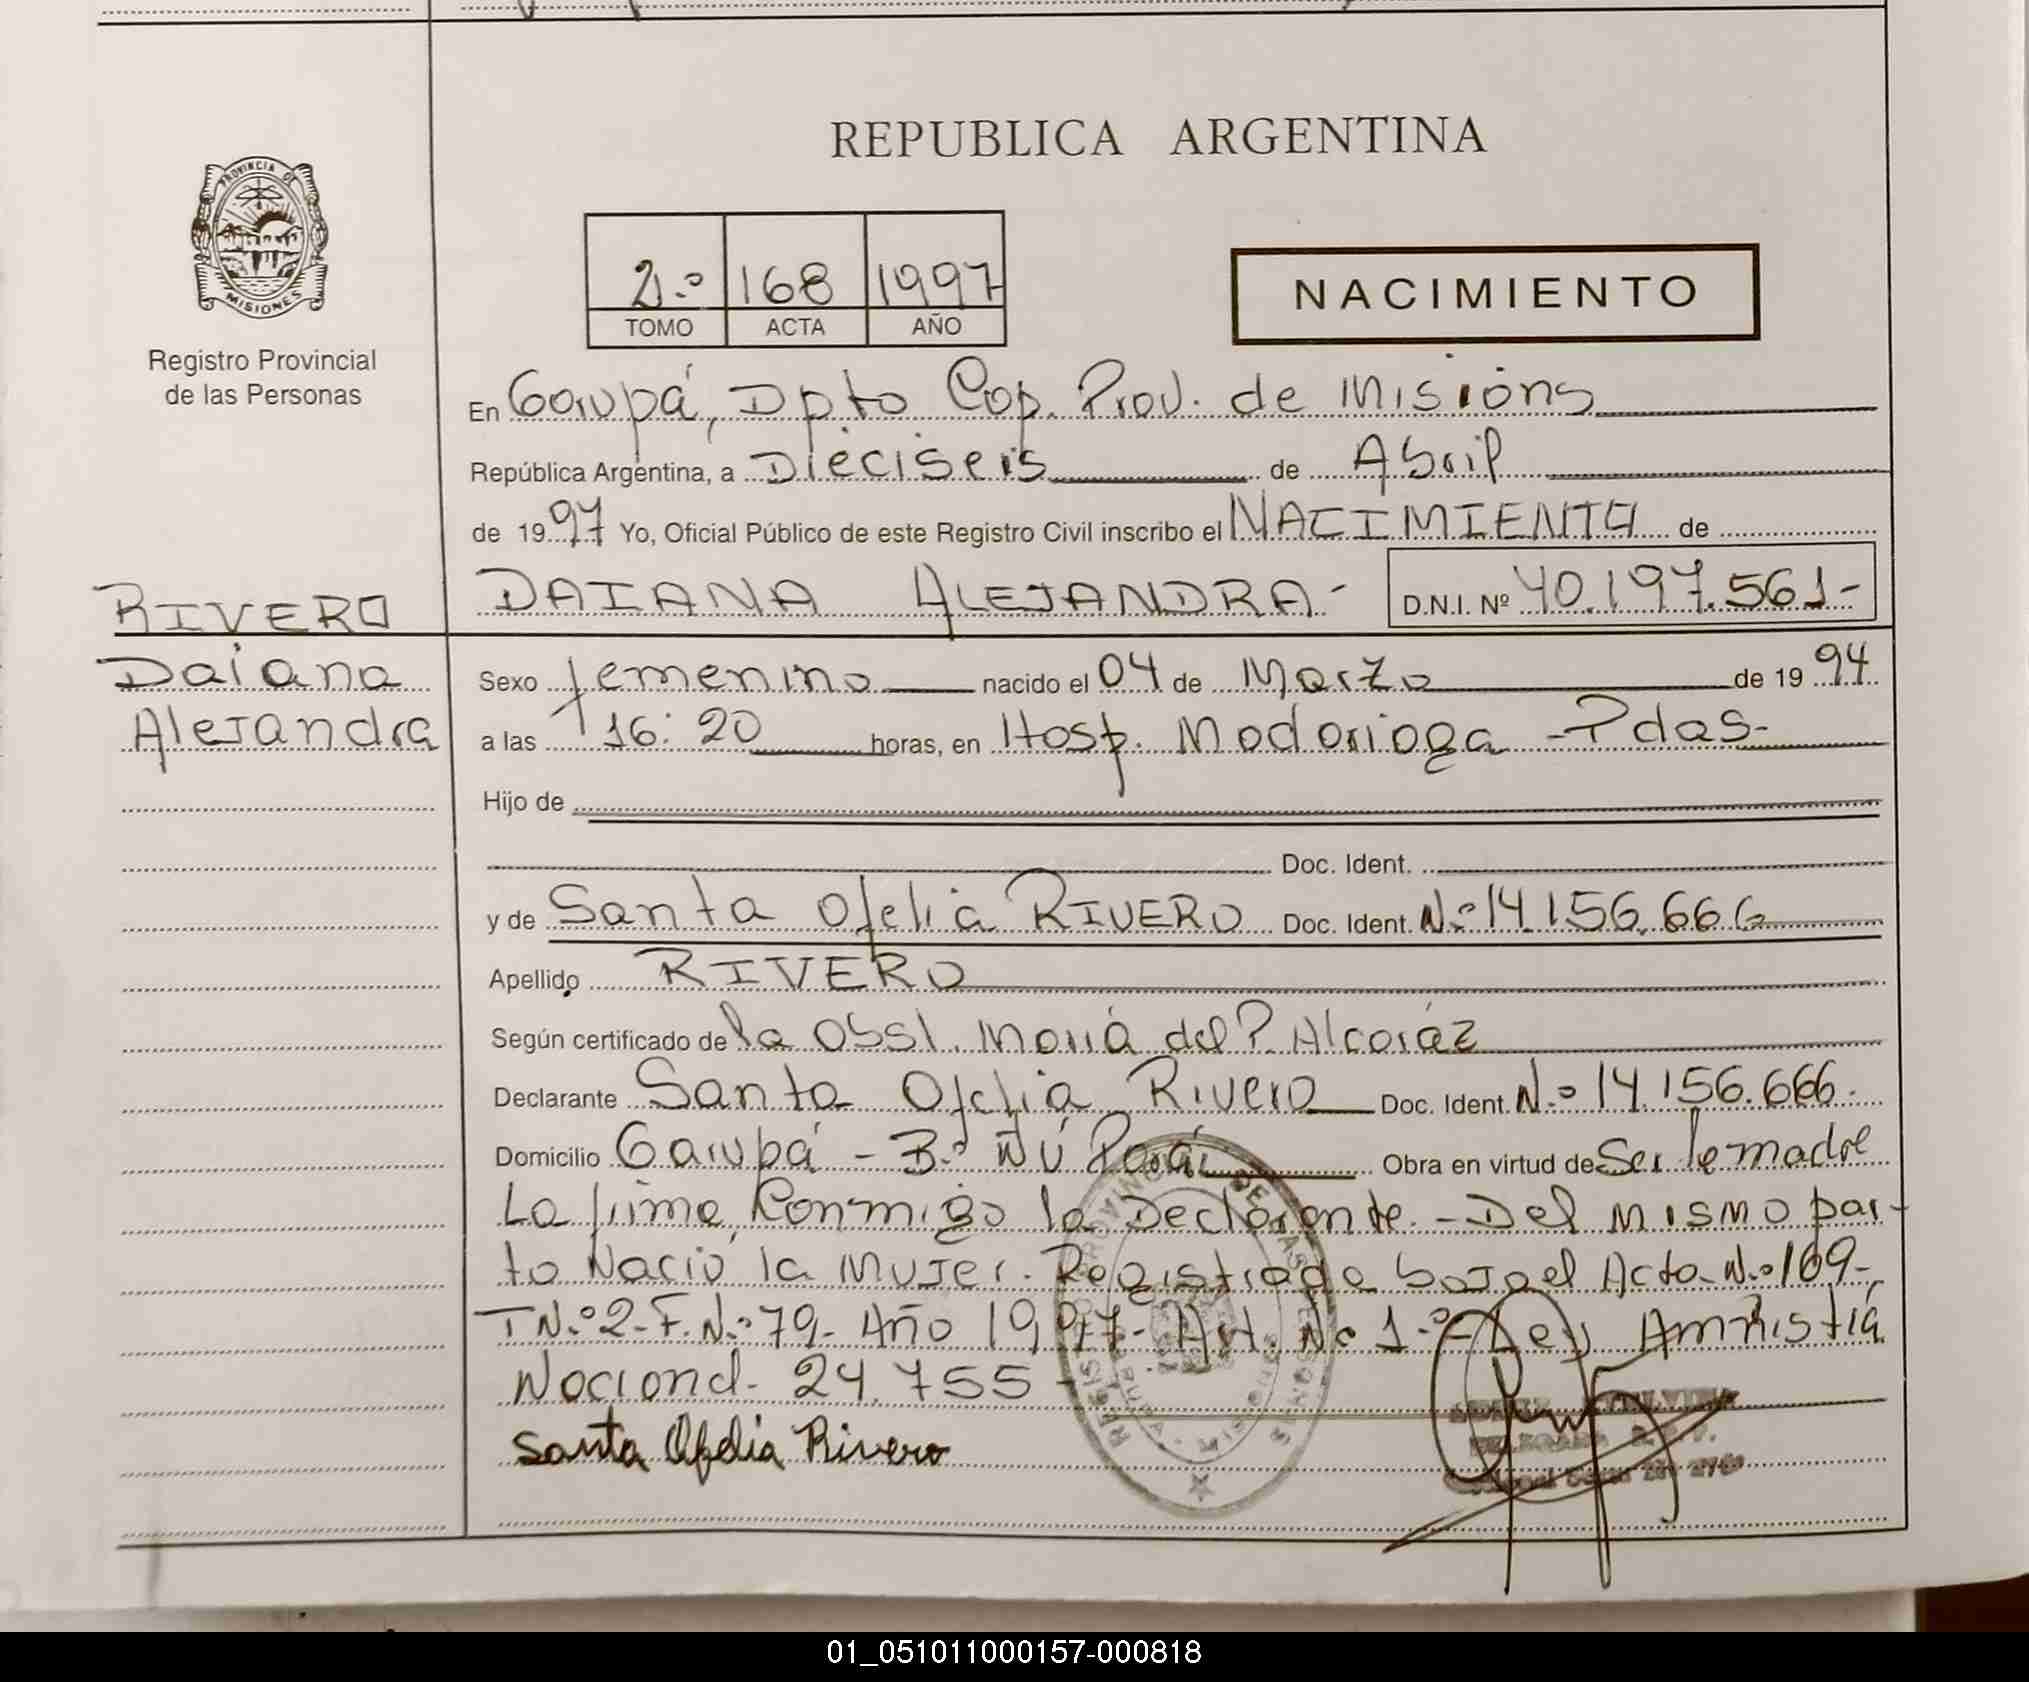 REPUBLICA ARGENTINA
PROVINCIA DE
MISIONES
Registro Provincial
de las Personas
2.º 168 1997
TOMO ACTA AÑO
NACIMIENTO
En Garupá, Dpto Cap. Prov. de Misións
República Argentina, a Dieciseis de Abril
de 1997 Yo, Oficial Público de este Registro Civil inscribo el NACIMIENTO de
RIVERO
Daiana
Alejandra
DAIANA ALEJANDRA- D.N.I. Nº 40.197.561-
Sexo femenino nacido el 04 de Marzo de 1994
a las 16:20 horas, en Hosp. Madariaga - Pdas-
Hijo de
Doc. Ident.
y de Santa Ofelia RIVERO Doc. Ident. N.º 14.156.666
Apellido RIVERO
Según certificado de la Obst. María del P. Alcaráz
Declarante Santa Ofelia Rivero Doc. Ident. N.º 14.156.666.
Domicilio Garupá - B.º Ñú Porá Obra en virtud de Ser la madre
La firma Conmigo la Declarante.- Del mismo par-
to Nació la mujer. Registrada bajo el Acta N.º 169-
T N.º 2-F. N.º 79- Año 1997- Art. Nº 1.º- Ley Amnistiá
Nacional- 24.755-
Santa Ofelia Rivero
01_051011000157-000818